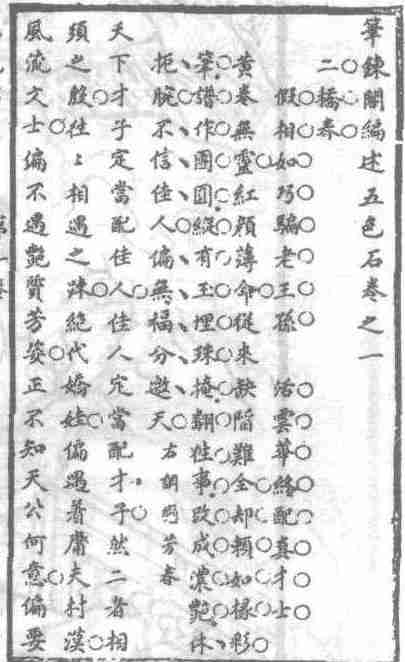 筆鍊閣編述五色石卷之一
二橋春
假相如巧騙老王孫　活雲華終配真才士
黃卷無靈紅顏薄命從來缺陷難全却賴如椽彩
筆譜作團圓縱有玉埋珠掩翻往事改成濃艷休
扼腕不信佳人偏無福分邀天　右調恋芳春
天下才子定當配佳人佳人定當配才子然二者相
須之殷往往相遇之踈絕代嬌娃偏遇着庸夫村漢
風流文士偏不遇艷質芳姿正不知天公何意偏要